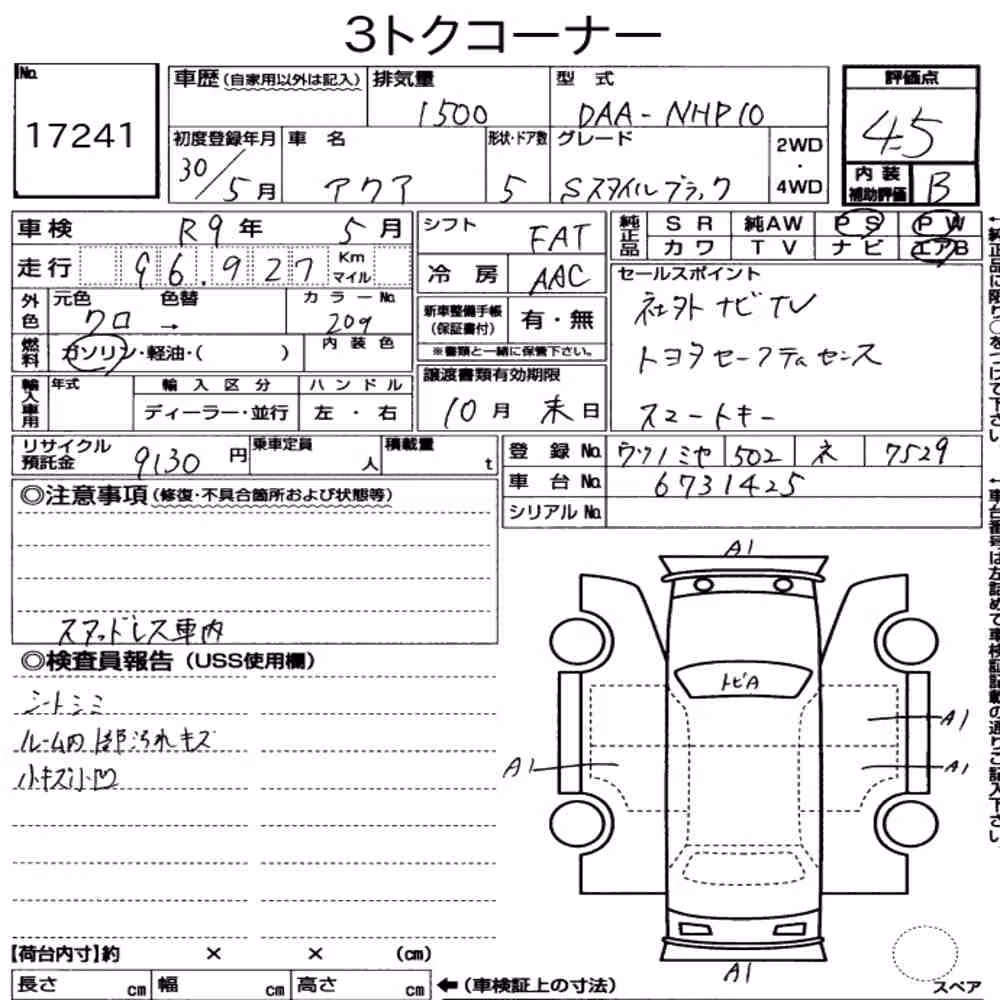 3トクコーナー
No.
17241
車歴(自家用以外は記入)
排気量
1500
型 式
DAA-NHP10
評価点
4.5
初度登録年月
30/5月
車 名
アクア
形状・ドア数
5
グレード
Sスタイルブラック
2WD
・
4WD
内装
補助評価
B
車検 R9年 5月
シフト FAT
純正品
SR 純AW PS PW
カワ TV ナビ エアB
走行 96.927 Km
マイル
冷房 AAC
外色
元色 色替
クロ →
カラーNo.
209
新車整備手帳
(保証書付)
有・無
※書類と一緒に保管下さい。
セールスポイント
社外ナビTV
トヨタセーフティセンス
スマートキー
燃料
ガソリン・軽油・( )
内装色
輸入車用
年式
輸入区分
ディーラー・並行
ハンドル
左・右
譲渡書類有効期限
10月末日
リサイクル
預託金
9130円
乗車定員
人
積載量
t
登録No. ウツノミヤ 502 ネ 7529
車台No. 6731425
シリアルNo.
◎注意事項(修復・不具合箇所および状態等)
スタッドレス車内
◎検査員報告(USS使用欄)
シートシミ
ルーム内1部汚れキズ
小キズ小凹
A1
トビA
A1
A1
A1
A1
【荷台内寸】約 × × (cm)
長さ cm 幅 cm 高さ cm
←(車検証上の寸法)
スペア
←純正品に限り○をつけて下さい。
←車台番号は左詰めで車検証記載の通りご記入下さい。